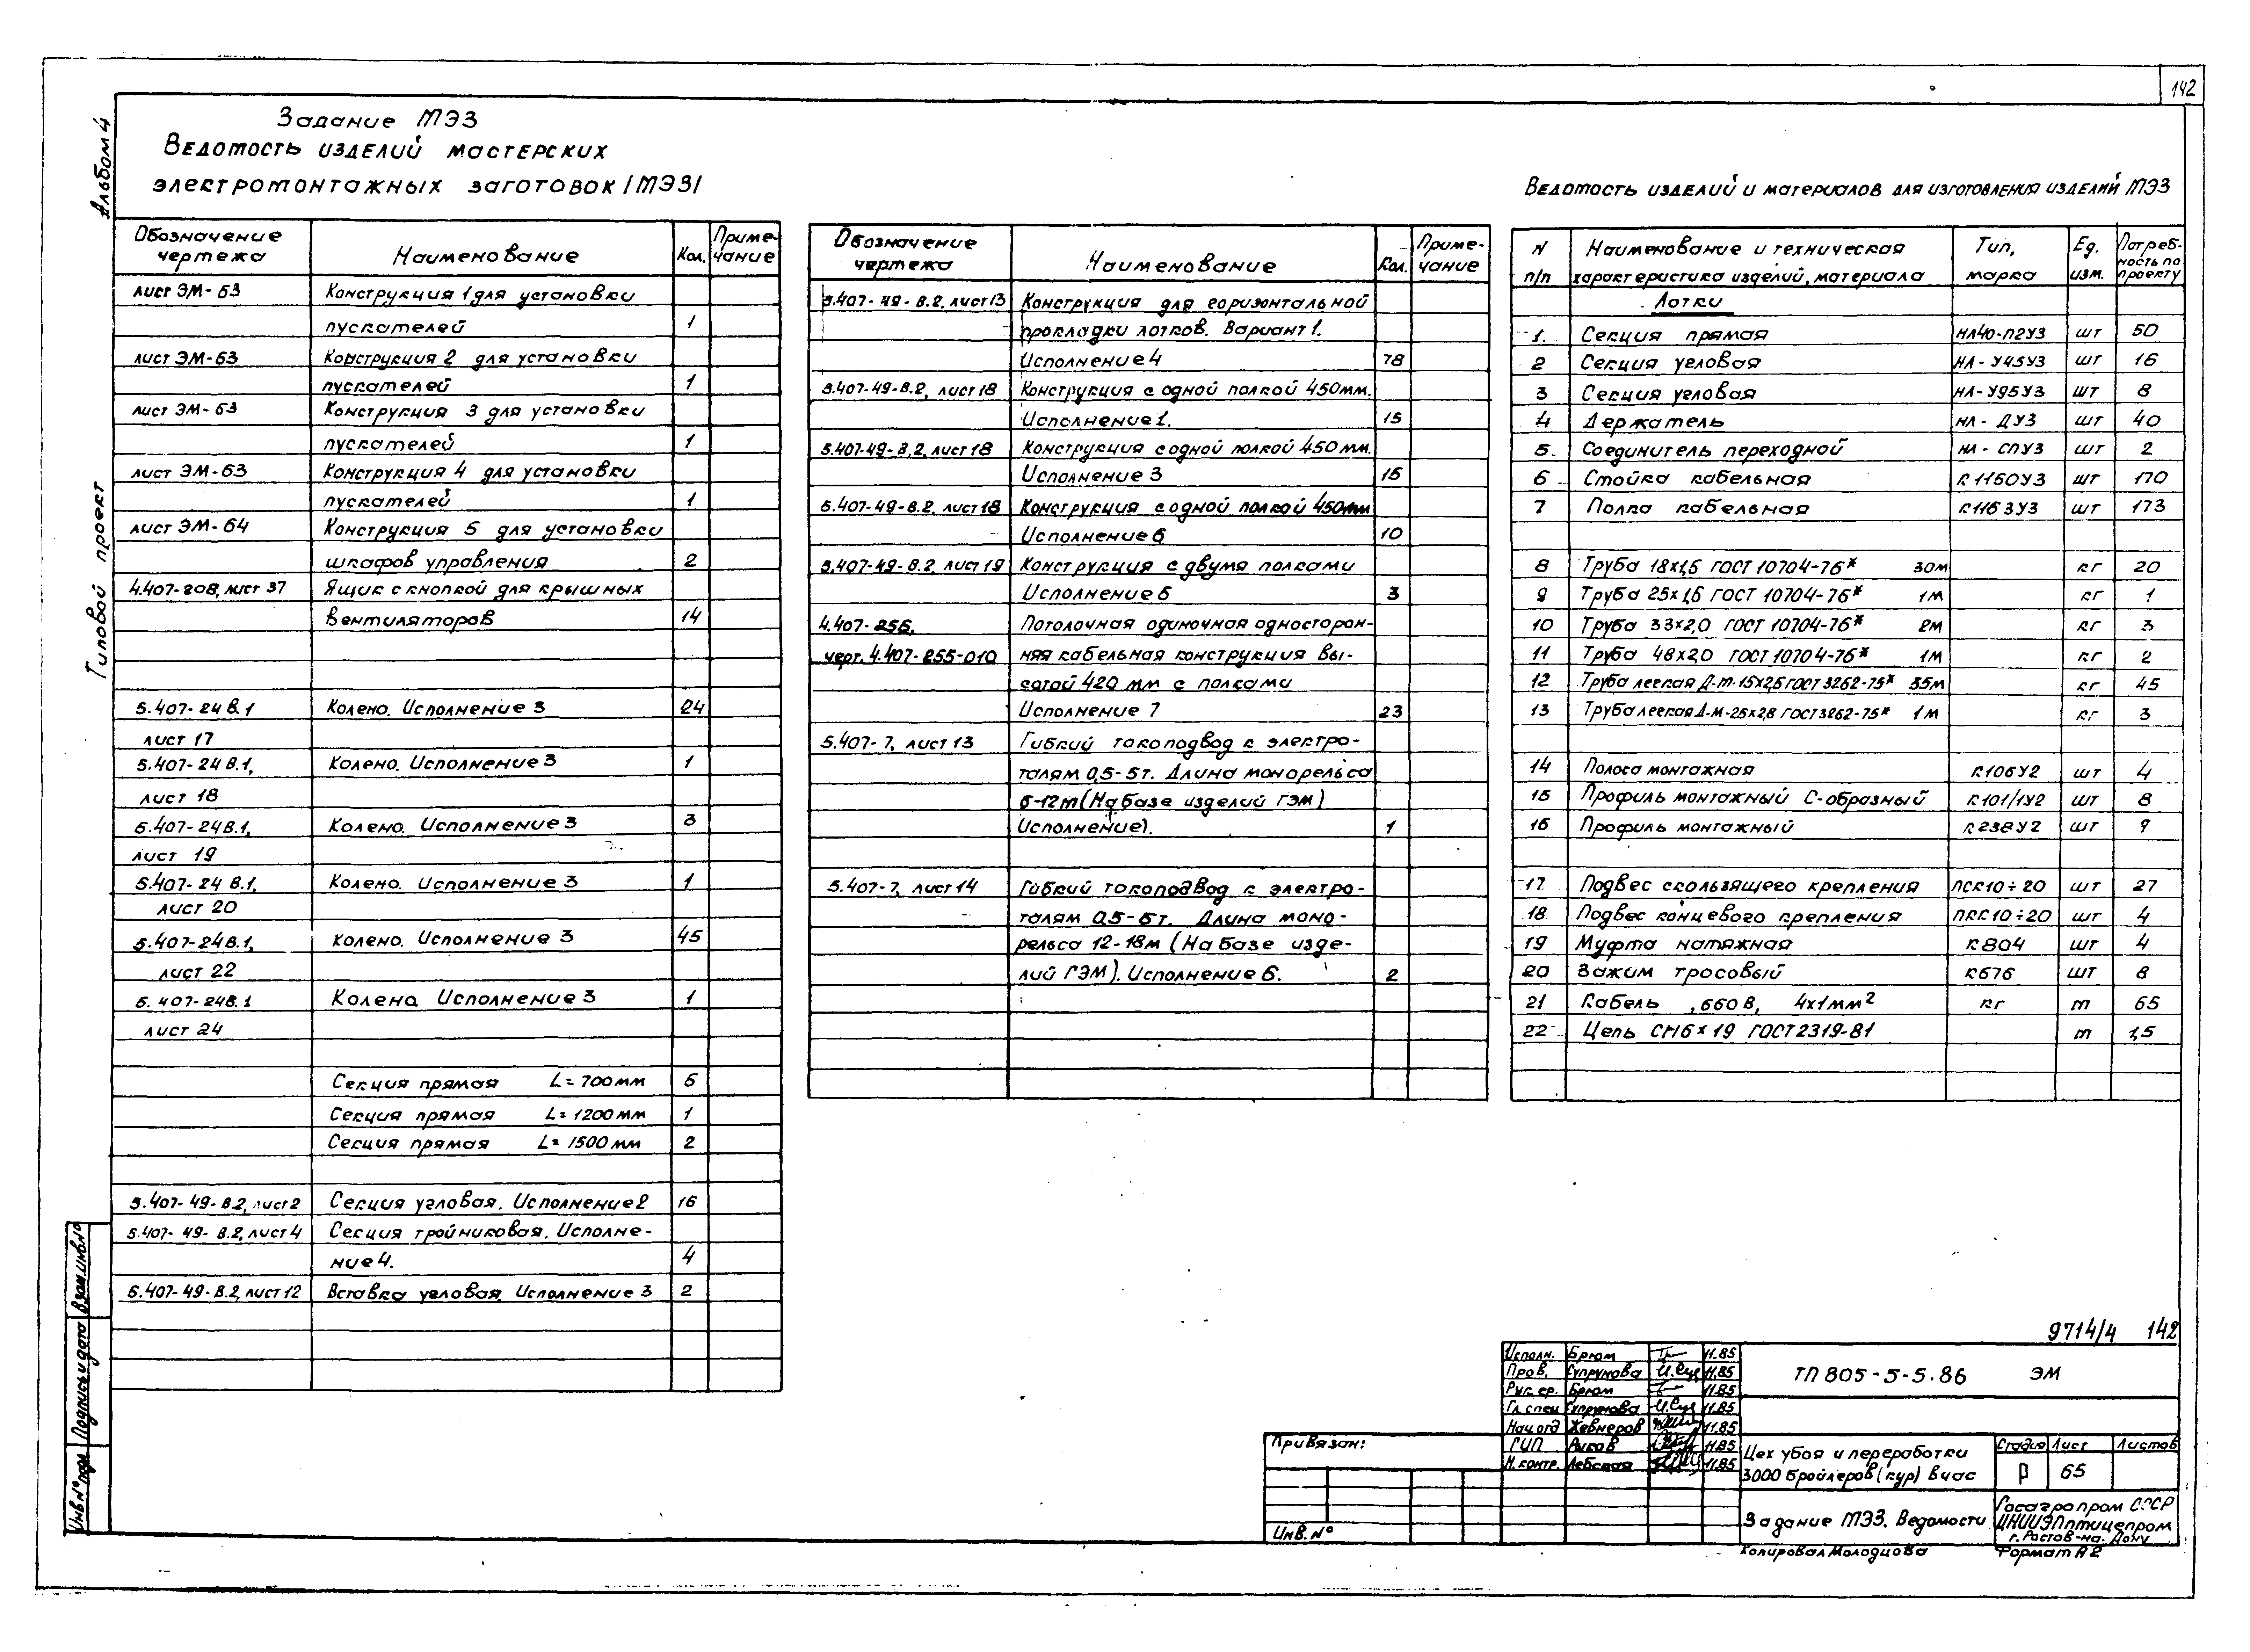 142
Альбом 4
Типовой проект
Задание МЭЗ
Ведомость изделий мастерских
электромонтажных заготовок /МЭЗ/
Обозначение чертежа | Наименование | Кол. | Примечание
лист ЭМ-63 Конструкция 1 для установки
пускателей 1
лист ЭМ-63 Конструкция 2 для установки
пускателей 1
лист ЭМ-63 Конструкция 3 для установки
пускателей 1
лист ЭМ-63 Конструкция 4 для установки
пускателей 1
лист ЭМ-64 Конструкция 5 для установки
шкафов управления 2
4.407-208, лист 37 Ящик с кнопкой для крышных
вентиляторов 14
5.407-24 В.1 Колено. Исполнение 3 24
лист 17
5.407-24 В.1, Колено. Исполнение 3 1
лист 18
5.407-24 В.1, Колено. Исполнение 3 3
лист 19
5.407-24 В.1, Колено. Исполнение 3 1
лист 20
5.407-24 В.1, Колено. Исполнение 3 45
лист 22
5.407-24 В.1 Колено. Исполнение 3 1
лист 24
Секция прямая L=700мм 5
Секция прямая L=1200мм 1
Секция прямая L=1500мм 2
5.407-49-В.2, лист 2 Секция угловая. Исполнение 2 16
5.407-49-В.2, лист 4 Секция тройниковая. Исполне-
ние 4. 4
5.407-49-В.2, лист 12 Вставка угловая. Исполнение 3 2
Обозначение чертежа | Наименование | Кол. | Приме-чание
5.407-49-В.2, лист 13 Конструкция для горизонтальной
прокладки лотков. Вариант 1.
Исполнение 4 78
5.407-49-В.2, лист 18 Конструкция с одной полкой 450мм.
Исполнение 1. 15
5.407-49-В.2, лист 18 Конструкция с одной полкой 450 мм.
Исполнение 3 15
5.407-49-В.2, лист 18 Конструкция с одной полкой 450мм
Исполнение 6 10
5.407-49-В.2, лист 19 Конструкция с двумя полками
Исполнение 6 3
4.407-255, Потолочная одиночная односторон-
черт. 4.407-255-010 няя кабельная конструкция вы-
сотой 420 мм с полками
Исполнение 7 23
5.407-7, лист 13 Гибкий токоподвод к электро-
талям 0,5-5т. Длина монорельса
6-12м (На базе изделий ГЭМ)
Исполнение). 1
5.407-7, лист 14 Гибкий токоподвод к электро-
талям 0,5-5т. Длина моно-
рельса 12-18м (На базе изде-
лий ГЭМ). Исполнение 6. 2
Ведомость изделий и материалов для изготовления изделий МЭЗ
N п/п | Наименование и техническая характеристика изделий, материала | Тип, марка | Ед. изм. | Потреб-ность по проекту
Лотки
1. Секция прямая НЛ40-П2У3 шт 50
2 Секция угловая НЛ-У45У3 шт 16
3 Секция угловая НЛ-У95У3 шт 8
4 Держатель НЛ-ДУ3 шт 40
5. Соединитель переходной НЛ-СПУ3 шт 2
6 Стойка кабельная К1150У3 шт 170
7 Полка кабельная К1163У3 шт 173
8 Труба 18х1,6 ГОСТ 10704-76* 30м кг 20
9 Труба 25х1,6 ГОСТ 10704-76* 1м кг 1
10 Труба 33х2,0 ГОСТ 10704-76* 2м кг 3
11 Труба 48х2,0 ГОСТ 10704-76* 1м кг 2
12 Труба легкая Д-М-15х2,5 ГОСТ 3262-75* 35м кг 45
13 Труба легкая Д-М-25х2,8 ГОСТ 3262-75* 1м кг 3
14 Полоса монтажная К106У2 шт 4
15 Профиль монтажный С-образный К101/1У2 шт 8
16 Профиль монтажный К238У2 шт 9
17 Подвес скользящего крепления ПСК10÷20 шт 27
18 Подвес концевого крепления ПКК10÷20 шт 4
19 Муфта натяжная К804 шт 4
20 Зажим тросовый К676 шт 8
21 Кабель , 660 В, 4х1мм² КГ м 65
22 Цепь СН6х19 ГОСТ 2319-81 м 1,5
9714/4 142
Исполн. Брюм 11.85
Пров. Супрунова 11.85
Рук. гр. Брюм 11.85
Гл. спец Супрунова 11.85
Нач. отд Жевнеров 11.85
ГИП Рыков 11.85
Н. контр. Лебская 11.85
ТП 805-5-5.86 ЭМ
Привязан:
Инв. №
Цех убоя и переработки
3000 бройлеров (кур) в час
Стадия Лист Листов
Р 65
Задание МЭЗ. Ведомости
Госагропром СССР
ЦНИИЭПптицепром
г. Ростов-на-Дону
Копировал Молодцова Формат А2
Инв № подл. Подпись и дата Взам. инв. №